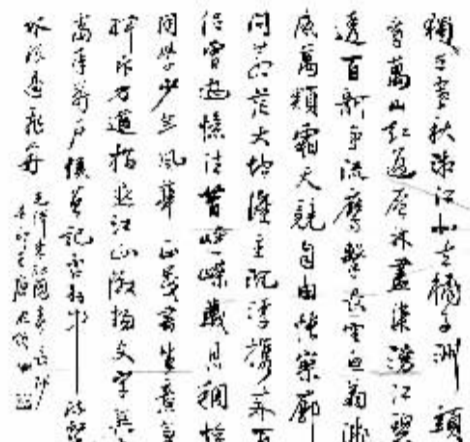 獨立寒秋湘江北去橘子洲頭
看萬山紅遍層林盡染漫江碧
透百舸爭流鷹擊長空魚翔淺
底萬類霜天競自由悵寥廓
問蒼茫大地誰主沉浮攜來百
侶曾遊憶往昔崢嶸歲月稠恰
同學少年風華正茂書生意氣
揮斥方遒指點江山激揚文字糞
萬户侯曾記否到中流擊
水浪遏飛舟
毛澤東沁園春長沙